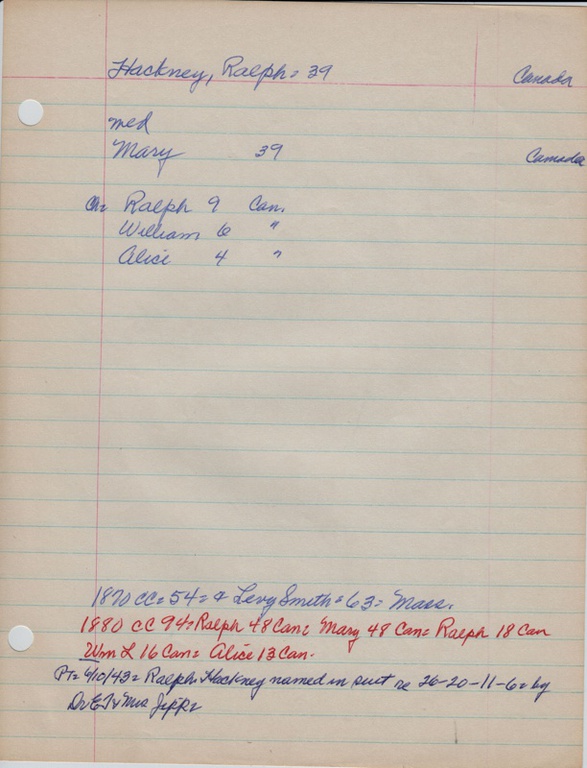 Hackney, Ralph = 39 Canada
med
Mary 39 Canada
Ch = Ralph 9 Can.
William 6 "
Alice 4 "
1870 CC = 54 = & Levy Smith = 63 = Mass.
1880 CC 94 = Ralph 48 Can = Mary 48 Can = Ralph 18 Can
Wm L 16 Can = Alice 13 Can.
PT = 9/10/43 = Ralph Hackney named in suit re 26-20-11-6 = by
Dr E T & Mrs